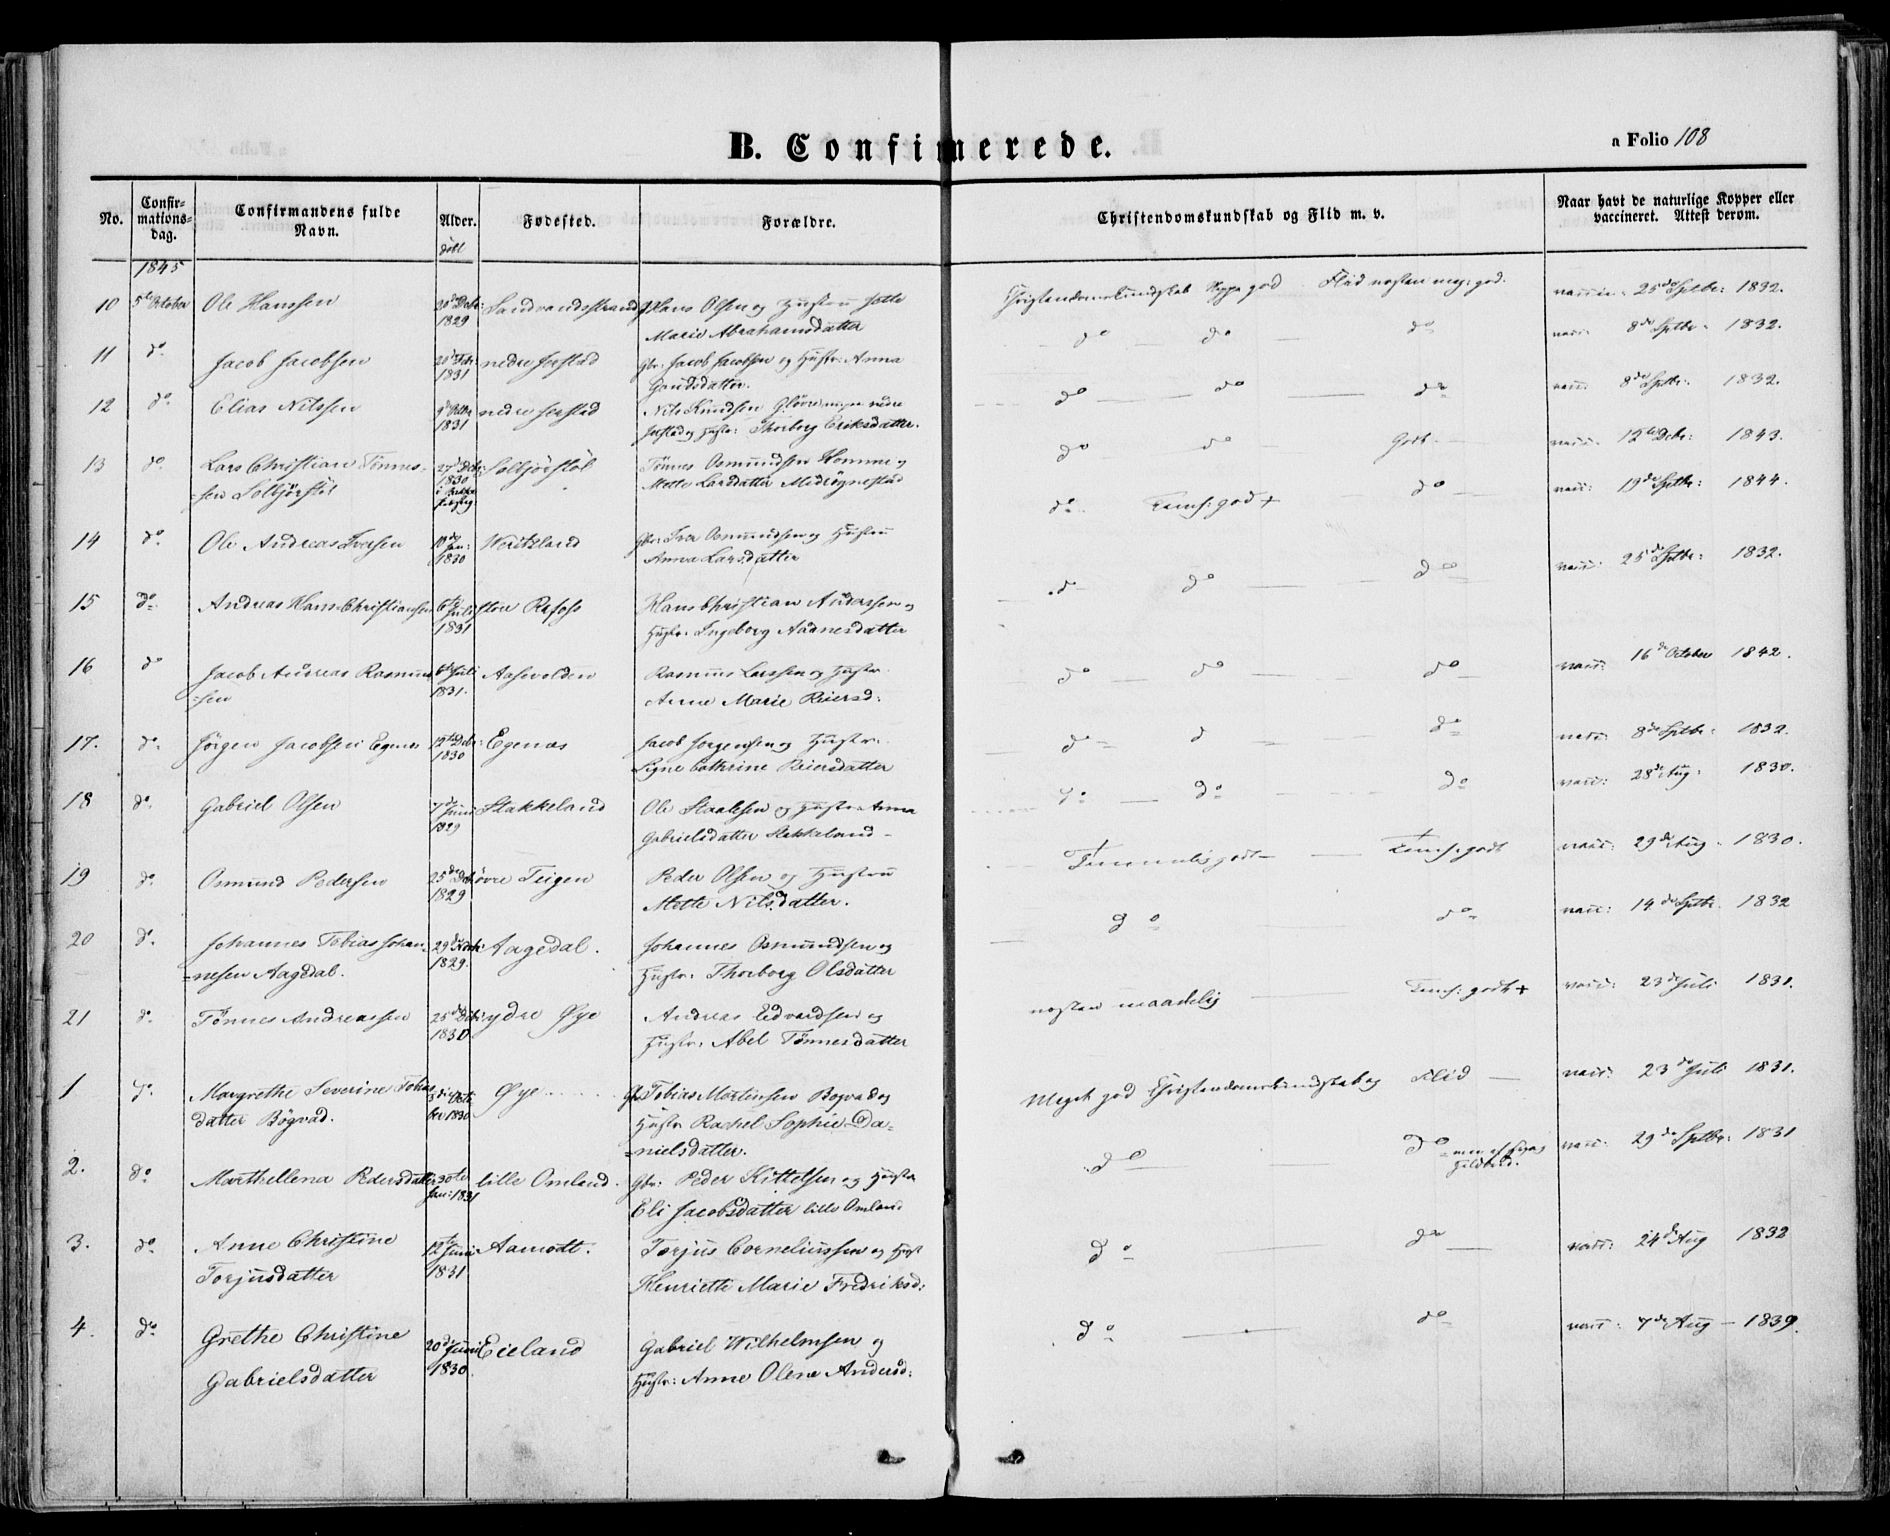 B. Confirmerede.
a Folio 108
No.
Confir-
mations-
dag.
Confirmandens fulde
Navn.
Alder.
Fødested.
Forældre.
Christendomskundskab og Flid m. v.
Naar havt de naturlige Kopper eller
vaccineret. Attest derom.
1845
10 5te October Ole Hanssen 1829 Hans Olsen og Hustru
Marie Abrahamsdatter
Christendomskundskab god Flid næsten meg: god. 25de Sptbr: 1832.
11 do Jacob Jacobsen 1831 nedre Jerstad Gbr: Jacob Jacobsen og Hustr: Anna
do do do vacc: 8de Sptbr: 1832.
12 do Elias Nilssen 1831 nedre Jerstad Nils Knudsen nedre
Jerstad og Hustr: Thorborg Eriksdatter.
do do do vacc: 8de Sptbr: 1832.
13 do Lars Christian Tønnes-
sen Solbjørstøl 1830 Solbjørstøl Tønnes Osmundsen Homme og
Mette Larsdatter Midtøgnestad
do do Godt. vacc: 12te Debr: 1843.
14 do Ole Andreas Iversen 10de Jan: 1830 Gbr: Iver Osmundsen og Hustru
Anna Larsdatter
do Temf: god + do vacc: 19de Sptbr: 1844.
15 do Andreas Hans Christiansen 6te Juli 1831 store Refoss Hans Christian Anderssen og
Hustr: Ingeborg Aadnesdatter
do do do vacc: 25de Sptbr: 1832.
16 do Jacob Andreas Rasmus-
sen 6te Juli 1831. Aasevolden Rasmus Larssen og Hustr:
Anne Marie Reiersd:
do do do vacc: 16de October 1842.
17. do Jørgen Jacobsen Egenæs 12te Debr: 1830 Egenæs Jacob Jørgensen og Hustr:
Signe Cathrine Reiersdatter
do d do vacc: 8de Sptbr: 1832.
18 do Gabriel Olsen 7de Juni 1829 Stakkeland Ole Staalesen og Hustru Anna
Gabrielsdatter Stakkeland
do do do vacc: 28de Aug: 1830.
19 do Osmund Pedersen 25de 1829 øvre Teigen Peder Olsen og Hustru
Mette Nilsdatter.
Temmelig godt Temf: godt vacc: 29de Aug 1830.
20 do Johannes Tobias Johan-
nesen Aagedal. 29de 1829. Aagedal. Johannes Osmundsen og
Hustr: Thorborg Olsdatter
do do vacc: 14de Sptbr. 1832
21 do Tønnes Andreassen 25de 1830. ydre Øye Andreas Edvardsen og
Hustr: Abel Tønnesdatter
næsten maadelig Temf: godt + vacc: 23de Juli 1831.
1 do Margrethe Severine Tobias
datter Bøgvad. 1830 Øye Tobias Mortensen Bogvad og
Hustr Rachel Sophie Da-
nielsdatter.
Meget god Christendomskundskab og Flid vacc: 23de Juli 1831.
2. do Marthellena Pedersdatter 30te Jan: 1831 lille Omland. Gbr: Peder Kittelsen og Hustr
Eli Jacobsdatter lille Omland
do do vacc: 29de Sptbr: 1831
3. do Anne Christine
Torjusdatter 12te Juni 1831. Aamodt. Torjus Corneliussen og Hust
Henriette Marie Fredriksd:
do do vacc: 24de Aug 1832
4. do Grethe Christine
Gabrielsdatter 20de Juni 1830. Eieland Gabriel Wilhelmsen og
Hustr: Anne Olene Andersd:
do do vacc: 7de Aug 1839.